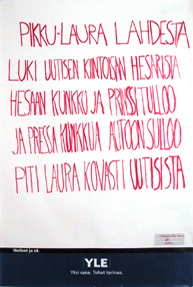 PIKKU-LAURA LAHDESTA
LUKI UUTISEN KIINTOISAN HESARISTA
HESAAN KUNKKU JA PRINSSI TULLOO
JA PRESSA KUNKKUA AUTOON SULLOO
PITI LAURA KOVASTI UUTISISTA
Uutiset ja sä.
YLE
Yksi sana. Tuhat tarinaa.